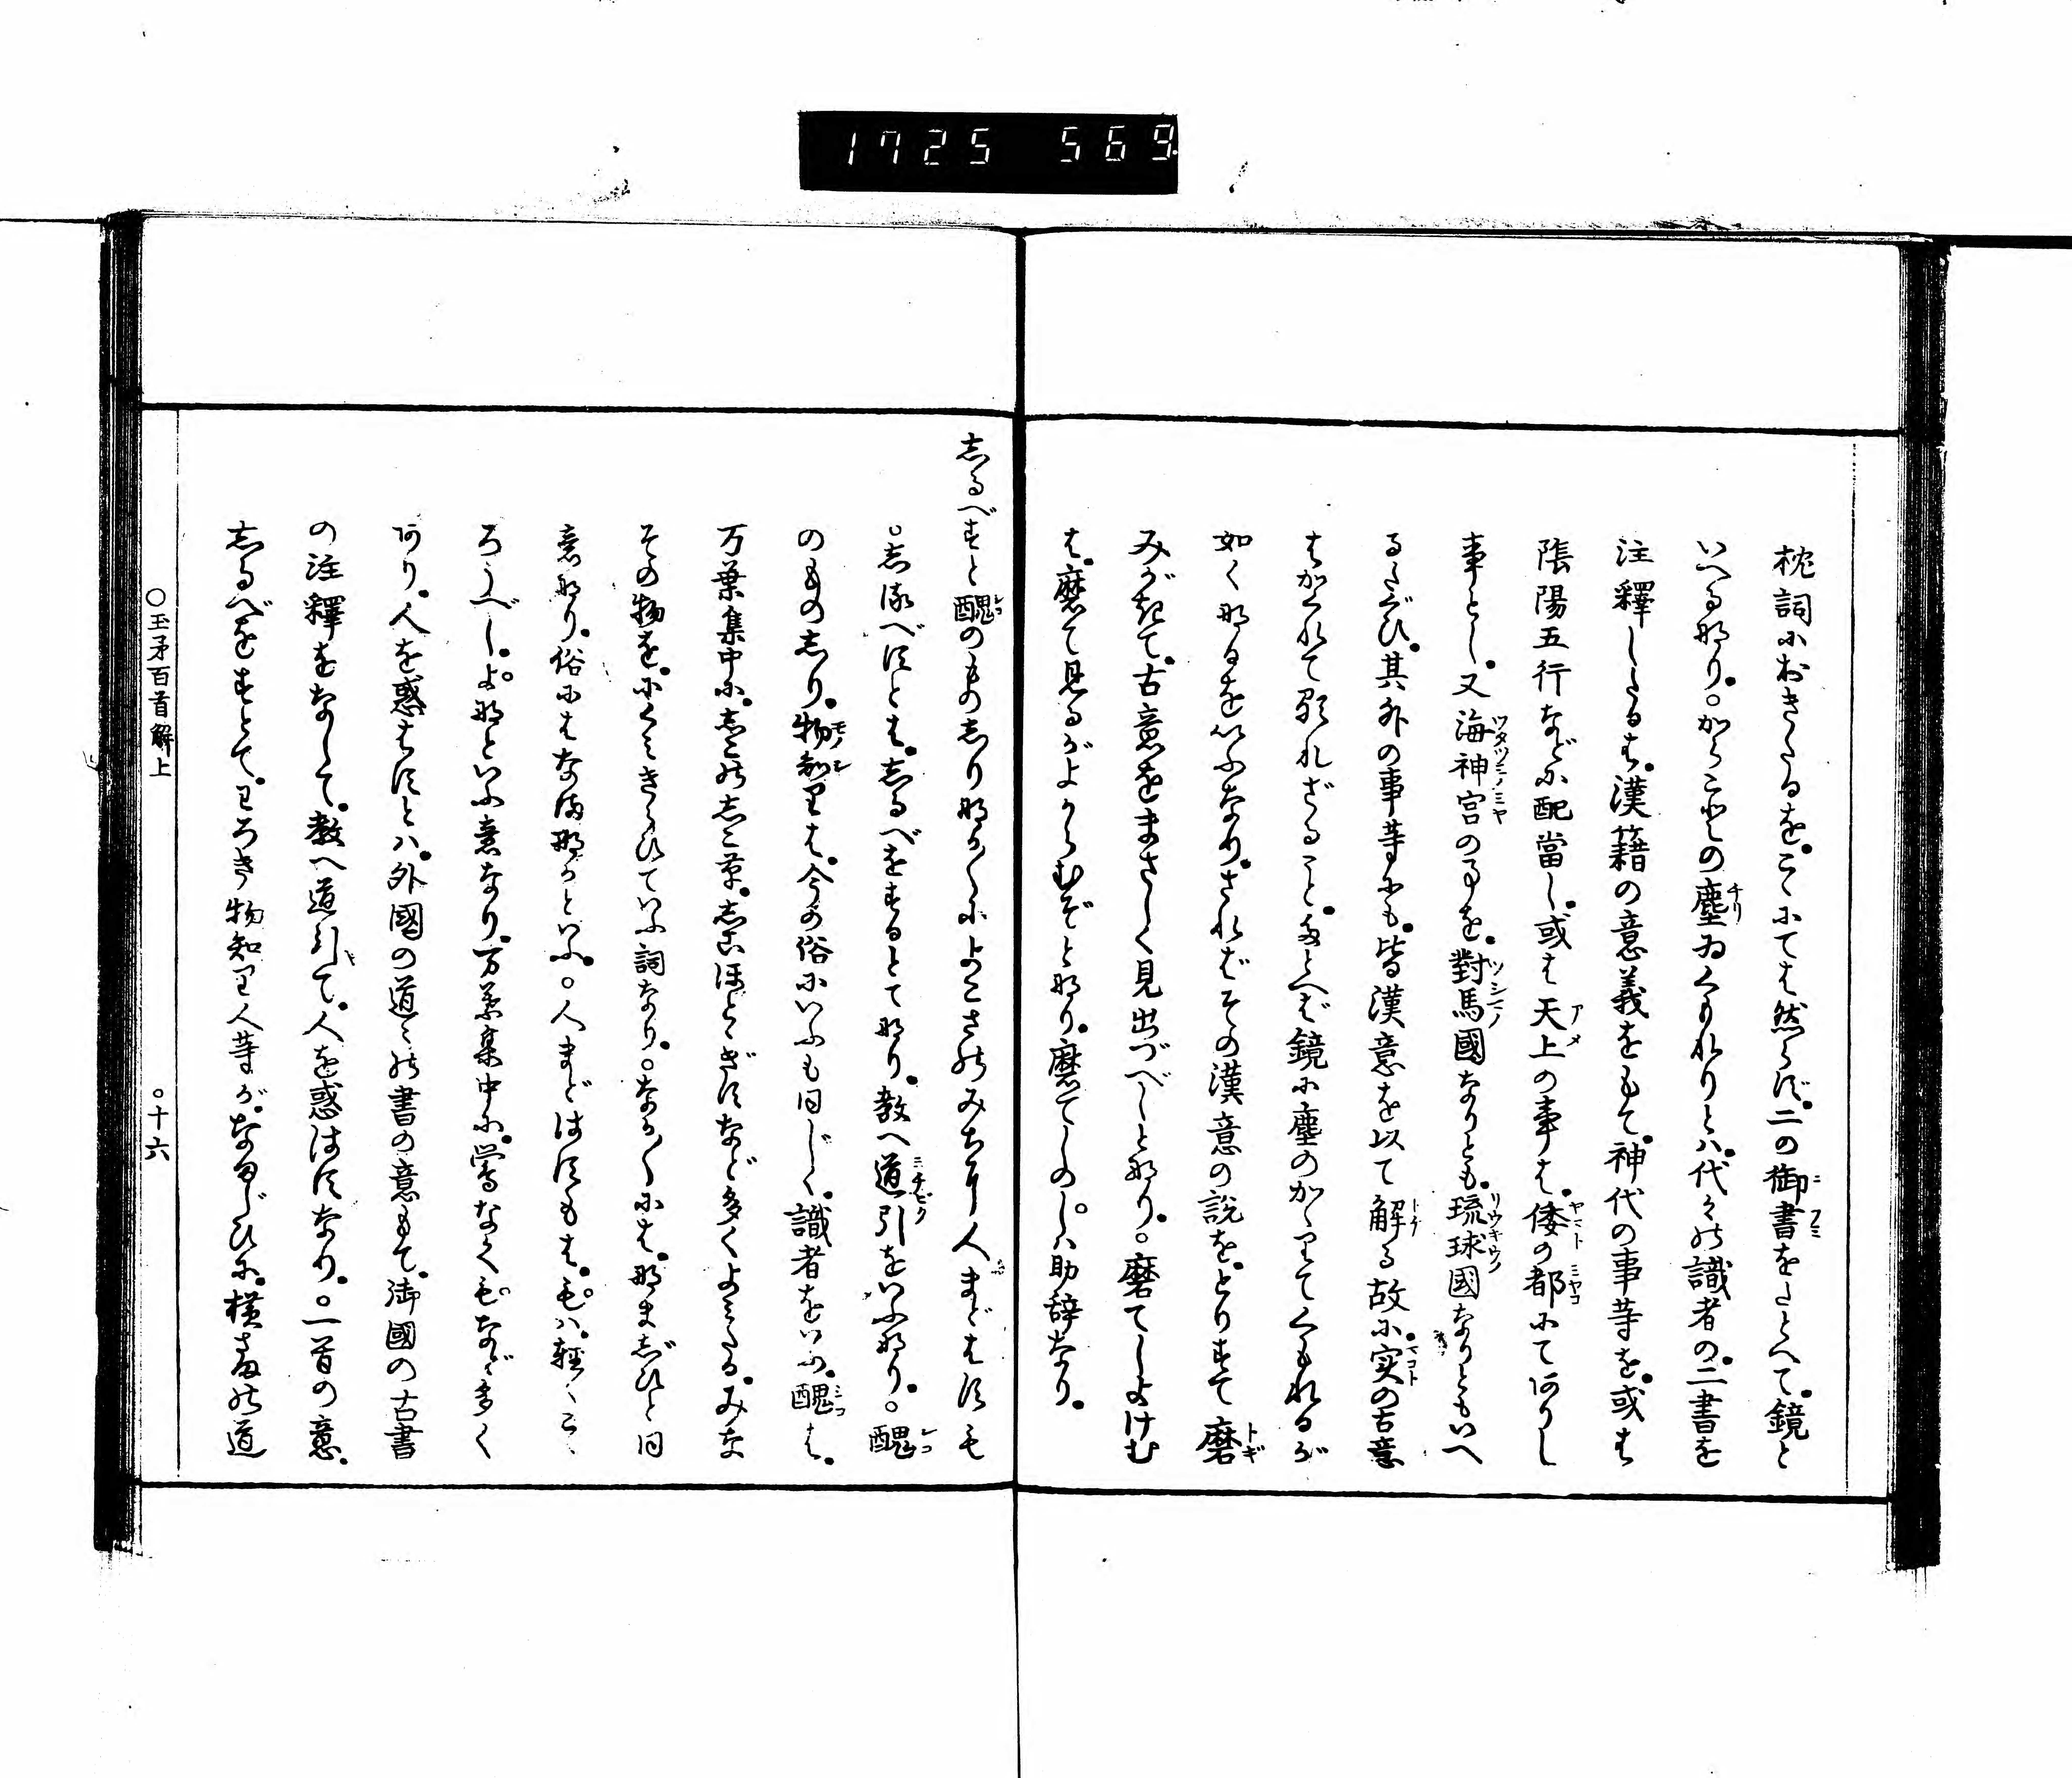 1725 569
枕詞におきたるを。こゝにては然らず。二の御書をたとへて。鏡と
いへる也。○かゝことの塵ゐくもれりとハ。代々の識者の。二書を
注釋したるは。漢籍の意義をもて。神代の事等を。或は
陰陽五行などに配當し。或は天上の事は。倭の都にてありし
事とし。又海神宮の事を。對馬國なりとも。琉球國なりともいへ
るたぐひ。其外の事等にも。皆漢意を以て解る故に。実の古意
はかくれて顕れざること。たとへば鏡に塵のかゝりてくもれるが
如く那るをいふなり。さればその漢意の説を。とりすて磨
みがきて。古意をまさしく見出づべしと那り。○磨てしよけむ
は。磨て見るがよからむぞと那り。磨てしのしハ助辞なり。
志るべすと醜のもの志り那か〱によこさのみちに人まどはすも
○志るべすとは。志るべをするとて那り。教へ道引をいふ那り。○醜
のもの志り。物知りは。今の俗にいふも同じく。識者をいふ。醜は。
万葉集中に。志この志こ草。志こほとゝぎすなど多くよみたる。みな
その物を。にくみきらひていふ詞なり。○なか〱には。那まじひと同
意那り。俗にはなま那かといふ。○人まどはすもは。もハ。輕くこゝ
ろうべし。よ那といふ意なり。万葉集中に。鶯なくもなど多く
あり。人を惑はすとハ。外國の道々の書の意もて。御國の古書
の注釋をなして。教へ道引て。人を惑はすなり。○一首の意。
志るべをすとて。わろき物知り人等が。なまじひに。横さまの道
○玉矛百首解上
○十六